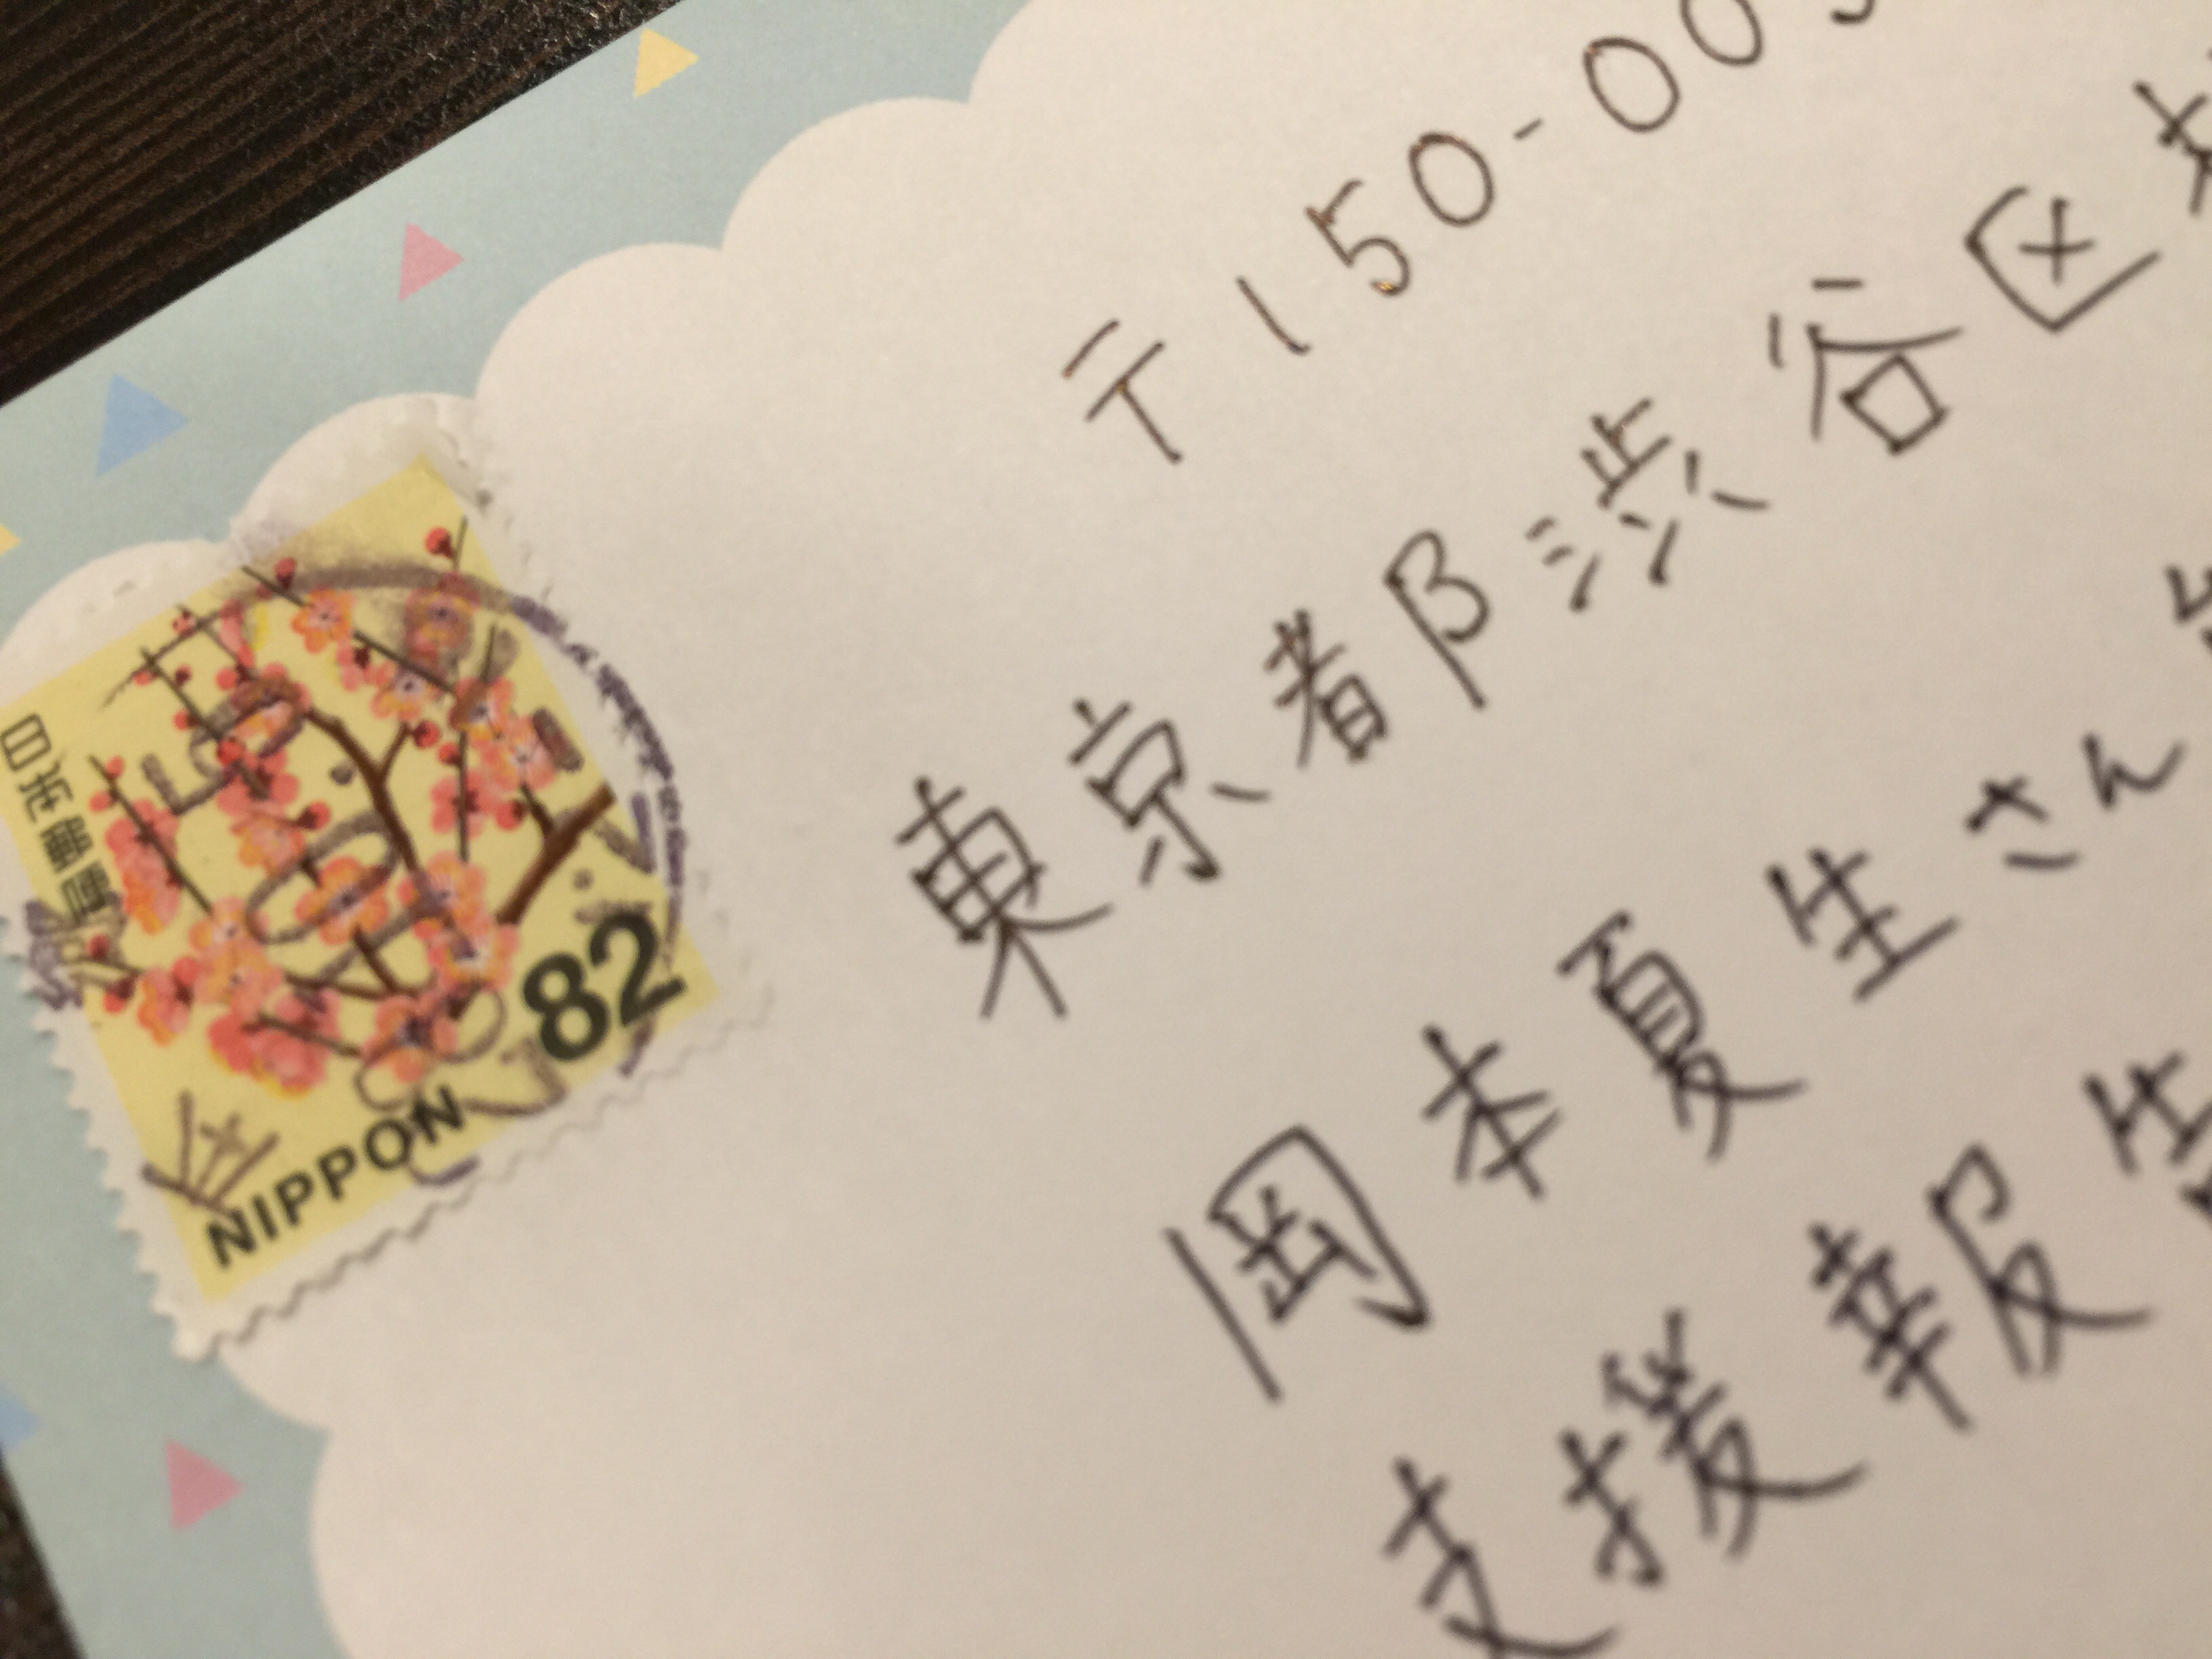 〒150-00
東京都渋谷区
岡本夏生さん
支援報
日本郵便
82
NIPPON